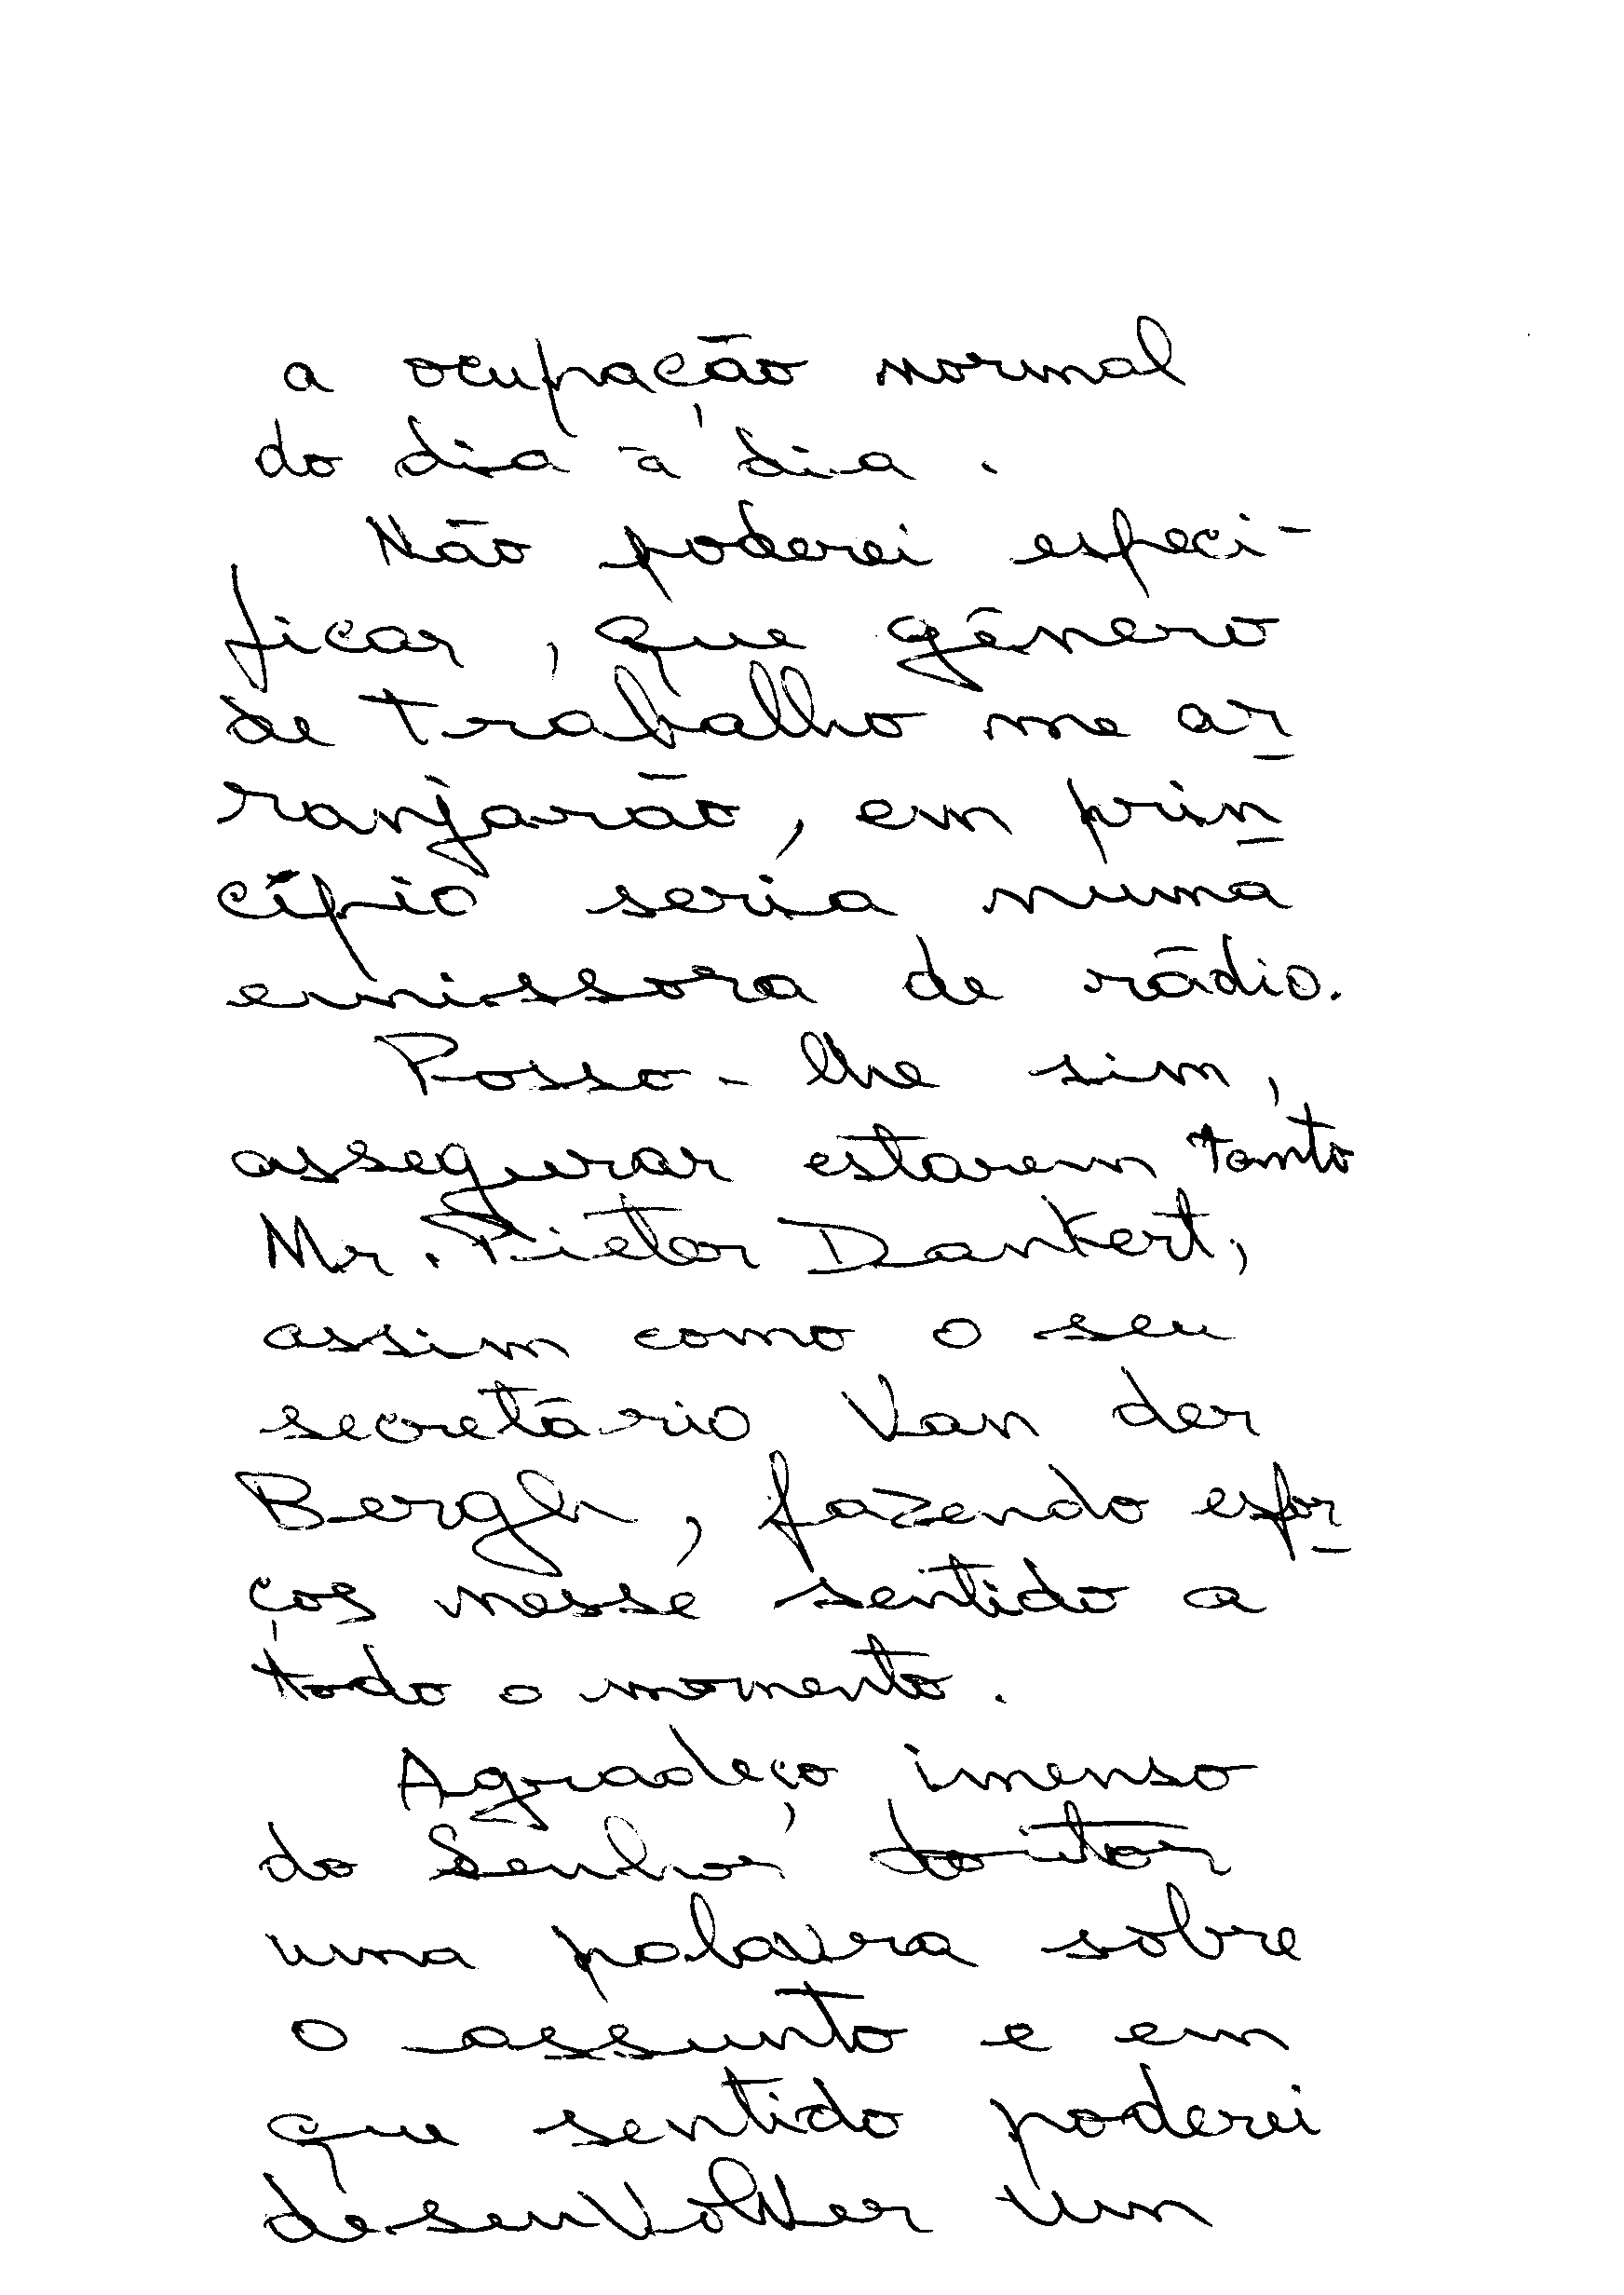 a ocupação normal
do dia ā dia.
Não poderei especi-
ficar, que género
de trabalho me ar-
ranjarão, em prin-
cípio seria numa
emissora de rádio.
Posso-lhe sim,
assegurar estarem tanto
Mr. Pieter Dankert,
assim como o seu
secretário Van der
Bergh, fazendo esfor-
ços nesse sentido a
todo o momento.
Agradeço imenso
do Senhor doutor
uma palavra sobre
o assunto e em
que sentido poderei
desenvolver um